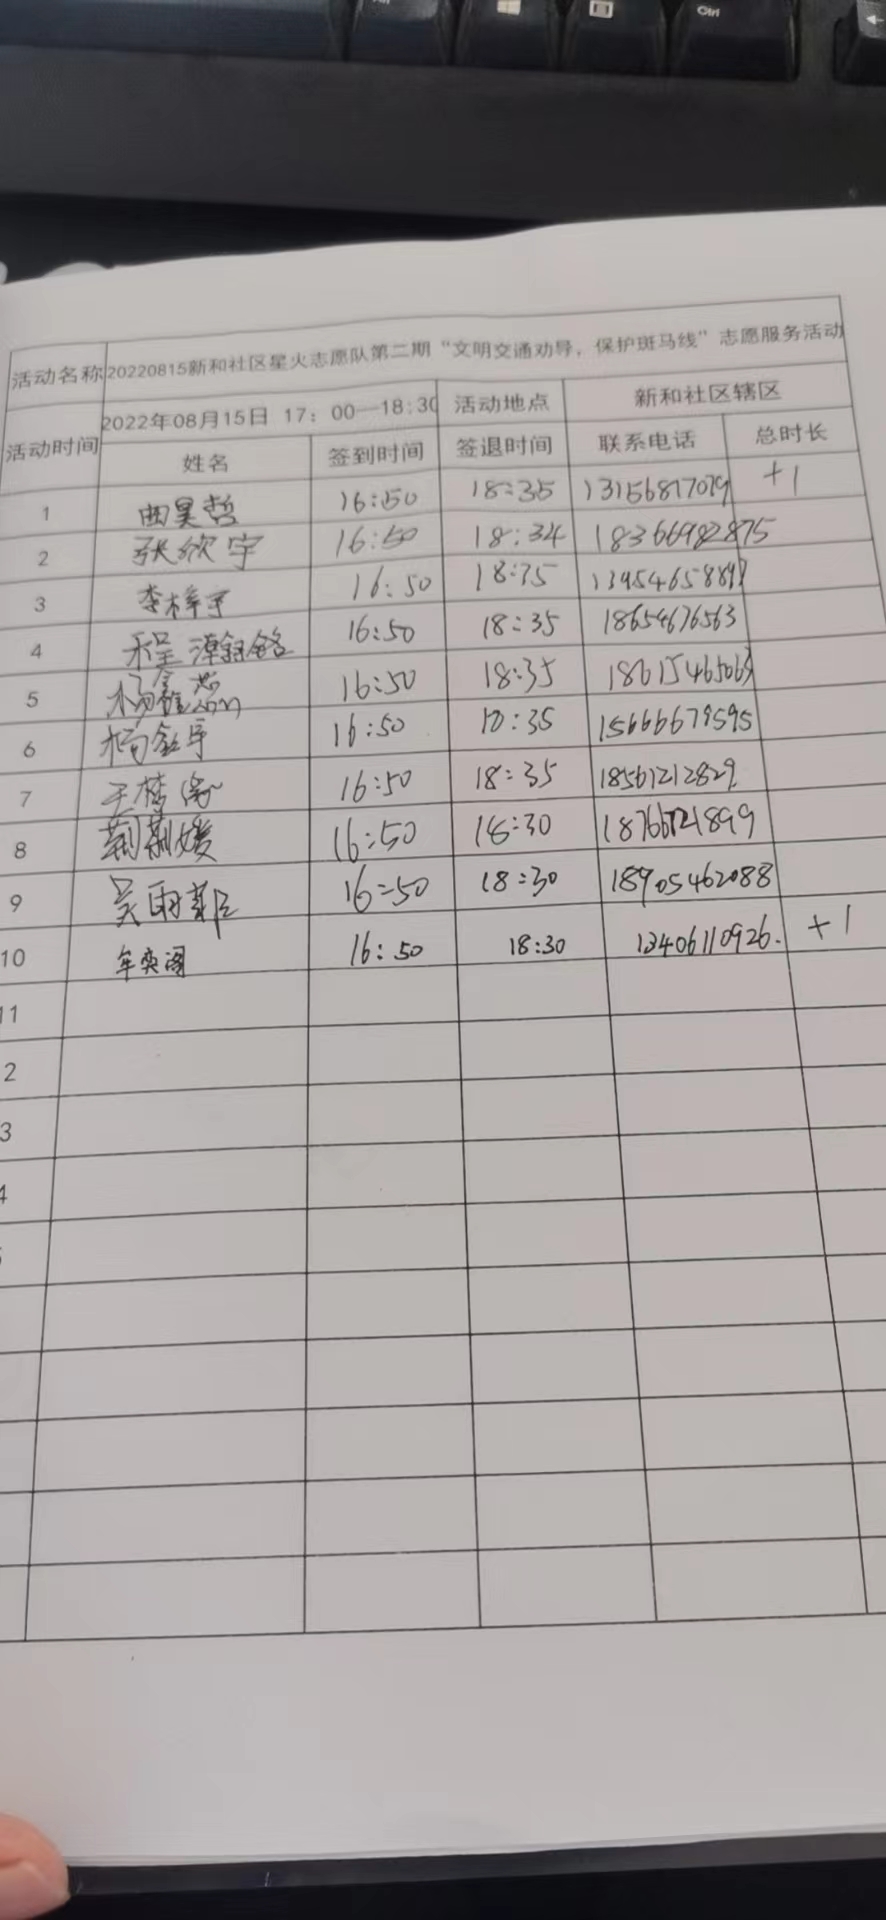 Ctrl
活动名称 20220815新和社区星火志愿队第二期“文明交通劝导，保护斑马线”志愿服务活动
活动时间 2022年08月15日 17：00—18:30 活动地点 新和社区辖区
姓名 签到时间 签退时间 联系电话 总时长
1 曲昊哲 16:50 18:35 13156817079 +1
2 张欣宇 16:50 18:34 18366982875
3 李梓宇 16:50 18:35
4 程 16:50 18:35 18654676563
5 杨鑫蕊 16:50 18:35 18615465063
6 杨 16:50 18:35 15666679595
7 王梦 16:50 18:35 18561212829
8 荆 媛 16:50 18:30 18766721899
9 吴雨 16:50 18:30 18905462088
10 牟奕阁 16:50 18:30 13406110926. +1
11
2
3
4